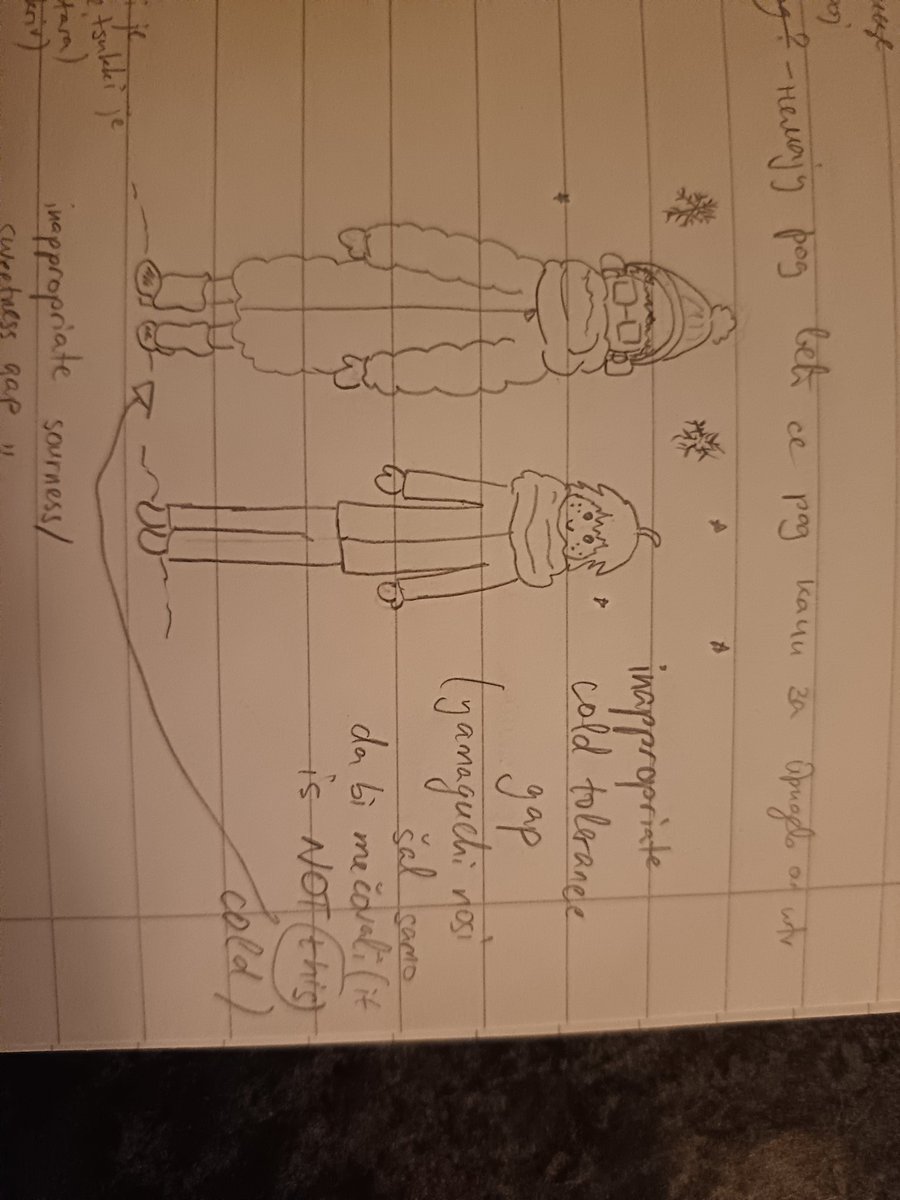 -немају род већ се род качи за
inappropriate
cold tolerance
gap
(yamaguchi nosi
šal samo
da bi mečovali (it
is NOT this)
cold)
je
tsukki je
inappropriate sourness/
sweetness gap "